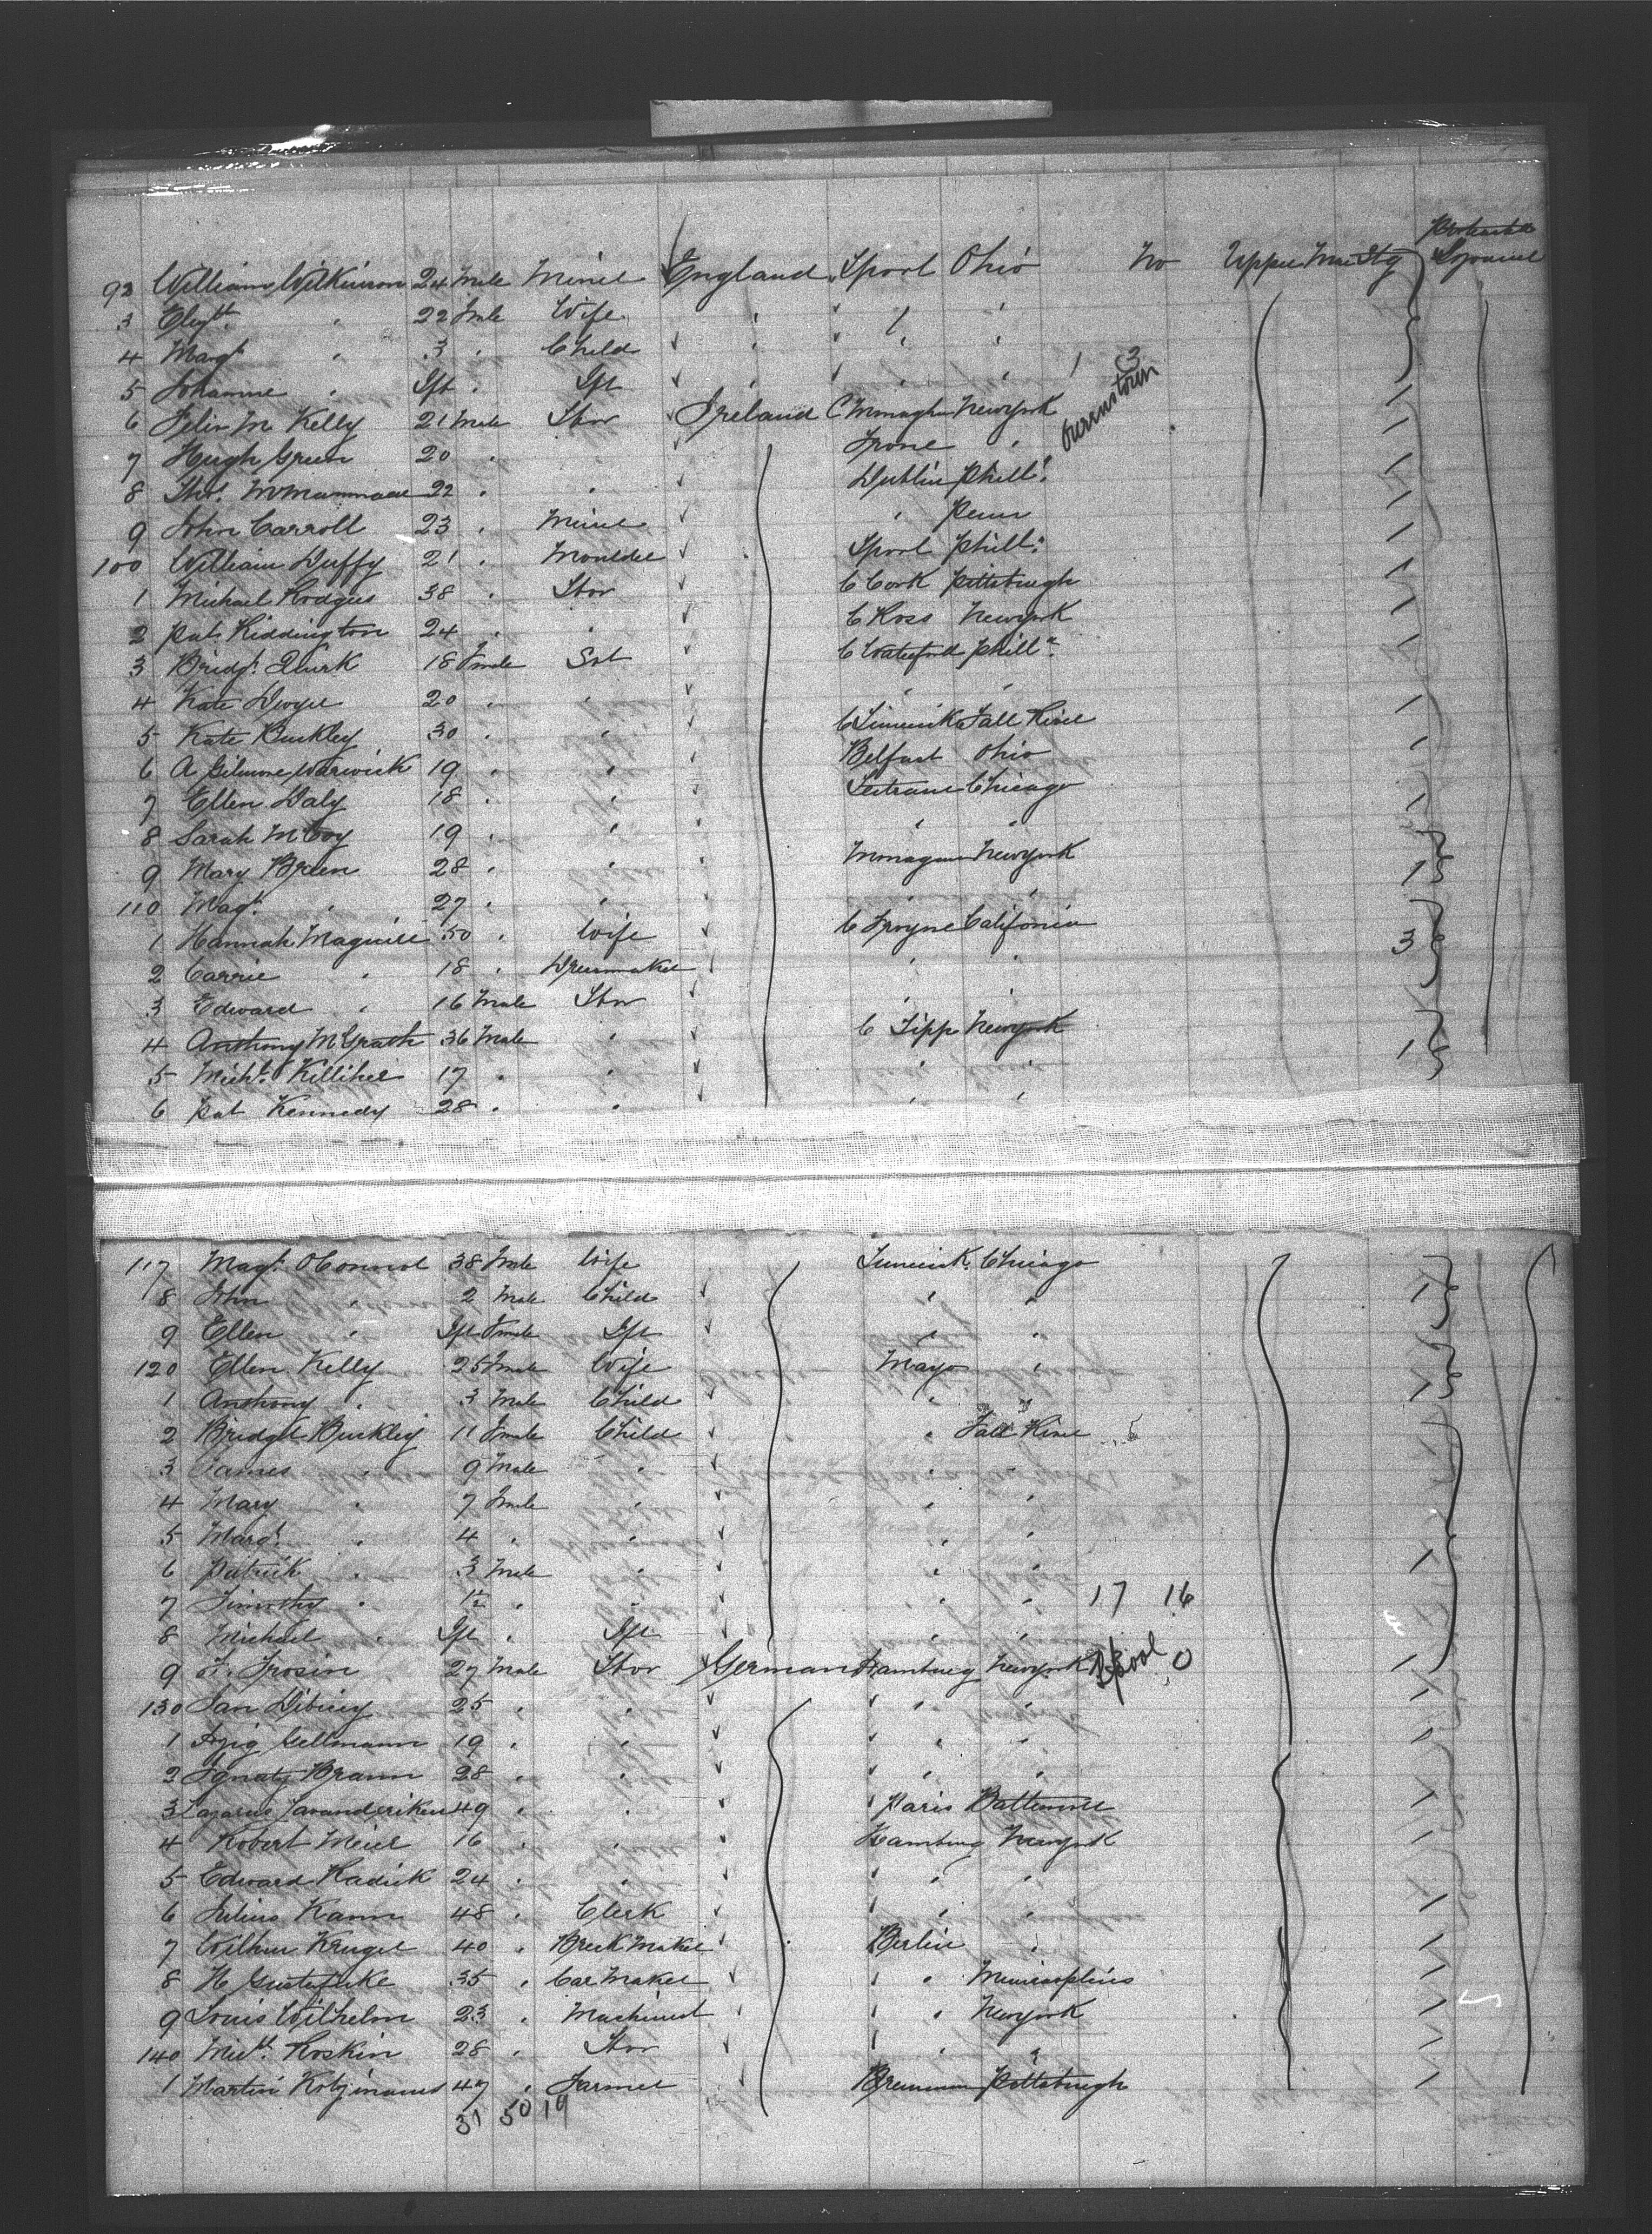 Protracted Sojourn
92 William Wilkinson 24 Male Miner England Lpool Ohio No Upper Mn Stg
3 Elizth " 22 Fmle Wife " " "
4 Margt " 3 " Child " " "
5 Johanne " Ift " Ift " " " 1 3
6 Felix Mc Kelly 21 Male Lbor Ireland C Monaghn Newyork Queenstown 1
7 Hugh Green 20 " " Tyrone " 1
8 Thos. 22 " " Dublin Phill. 1
9 John Carroll 23 " Miner " Penn 1
100 William Duffy 21 " Moulder Lpool Phill. 1
1 Michael Rodgers 38 " Lbor C Cork Pittsburgh 1
2 Pat Riddington 24 " " C Ross Newyork 1
3 Bridgt. Quirk 18 Fmle Svt C Waterford Phill. 1
4 Kate Dwyer 20 " " " "
5 Kate Buckley 30 " " C Limerick Fall River 1
6 A Gilmore Warwick 19 " " Belfast Ohio 1
7 Ellen Daly 18 " " Chicago
8 Sarah McCoy 19 " " " " 1
9 Mary Breen 28 " " Monagan Newyork 1
110 Magt. " 27 " " " "
1 Hannah Maguire 50 " Wife C Tyrone California 3
2 Carrie " 18 " Dressmaker " "
3 Edward " 16 Male Lbor " "
4 Anthony McGrath 36 Male " C Tipp Newyork
5 Michl. Killiher 17 " " 1
6 Pat Kennedy 28 " " " "
117 Magt. OConnor 38 Fmle Wife Limerick Chicago
8 John " 2 Male Child " " 1
9 Ellen " Ift Fmle Ift " "
120 Ellen Kelly 25 Fmle Wife Mayo "
1 Anthony " 3 Male Child " " 1
2 Bridget Buckley 11 Fmle Child " Fall River
3 James " 9 Male " " "
4 Mary " 7 Fmle " " "
5 Margt. " 4 " " " "
6 Patrick " 3 Male " " " 1
7 Timothy " 1½ " " " " 17 16
8 Michael " Ift " Ift " "
9 F. Frosin 27 Male Lbor German Hamburg Newyork Lpool 0 1
130 Jan 25 " " " " 1
1 Gellmann 19 " " " " 1
2 Ignatz Brann 28 " " " "
3 Lazarus 49 " " Paris Baltimore 1
4 Robert Meier 16 " " Hamburg Newyork 1
5 Edward Radick 24 " " " "
6 Julius Kann 48 " Clerk " " 1
7 Wilhm Kruger 40 " Brick Maker Berlin " 1
8 H 35 " Car Maker " Minneaplins 1
9 Louis Wilhelm 23 " Machinist " Newyork 1
140 Michl. Roskin 28 " Lbor " " 1
1 Martin 47 " Farmer Bremmen Pittsburgh 1
31 50 19